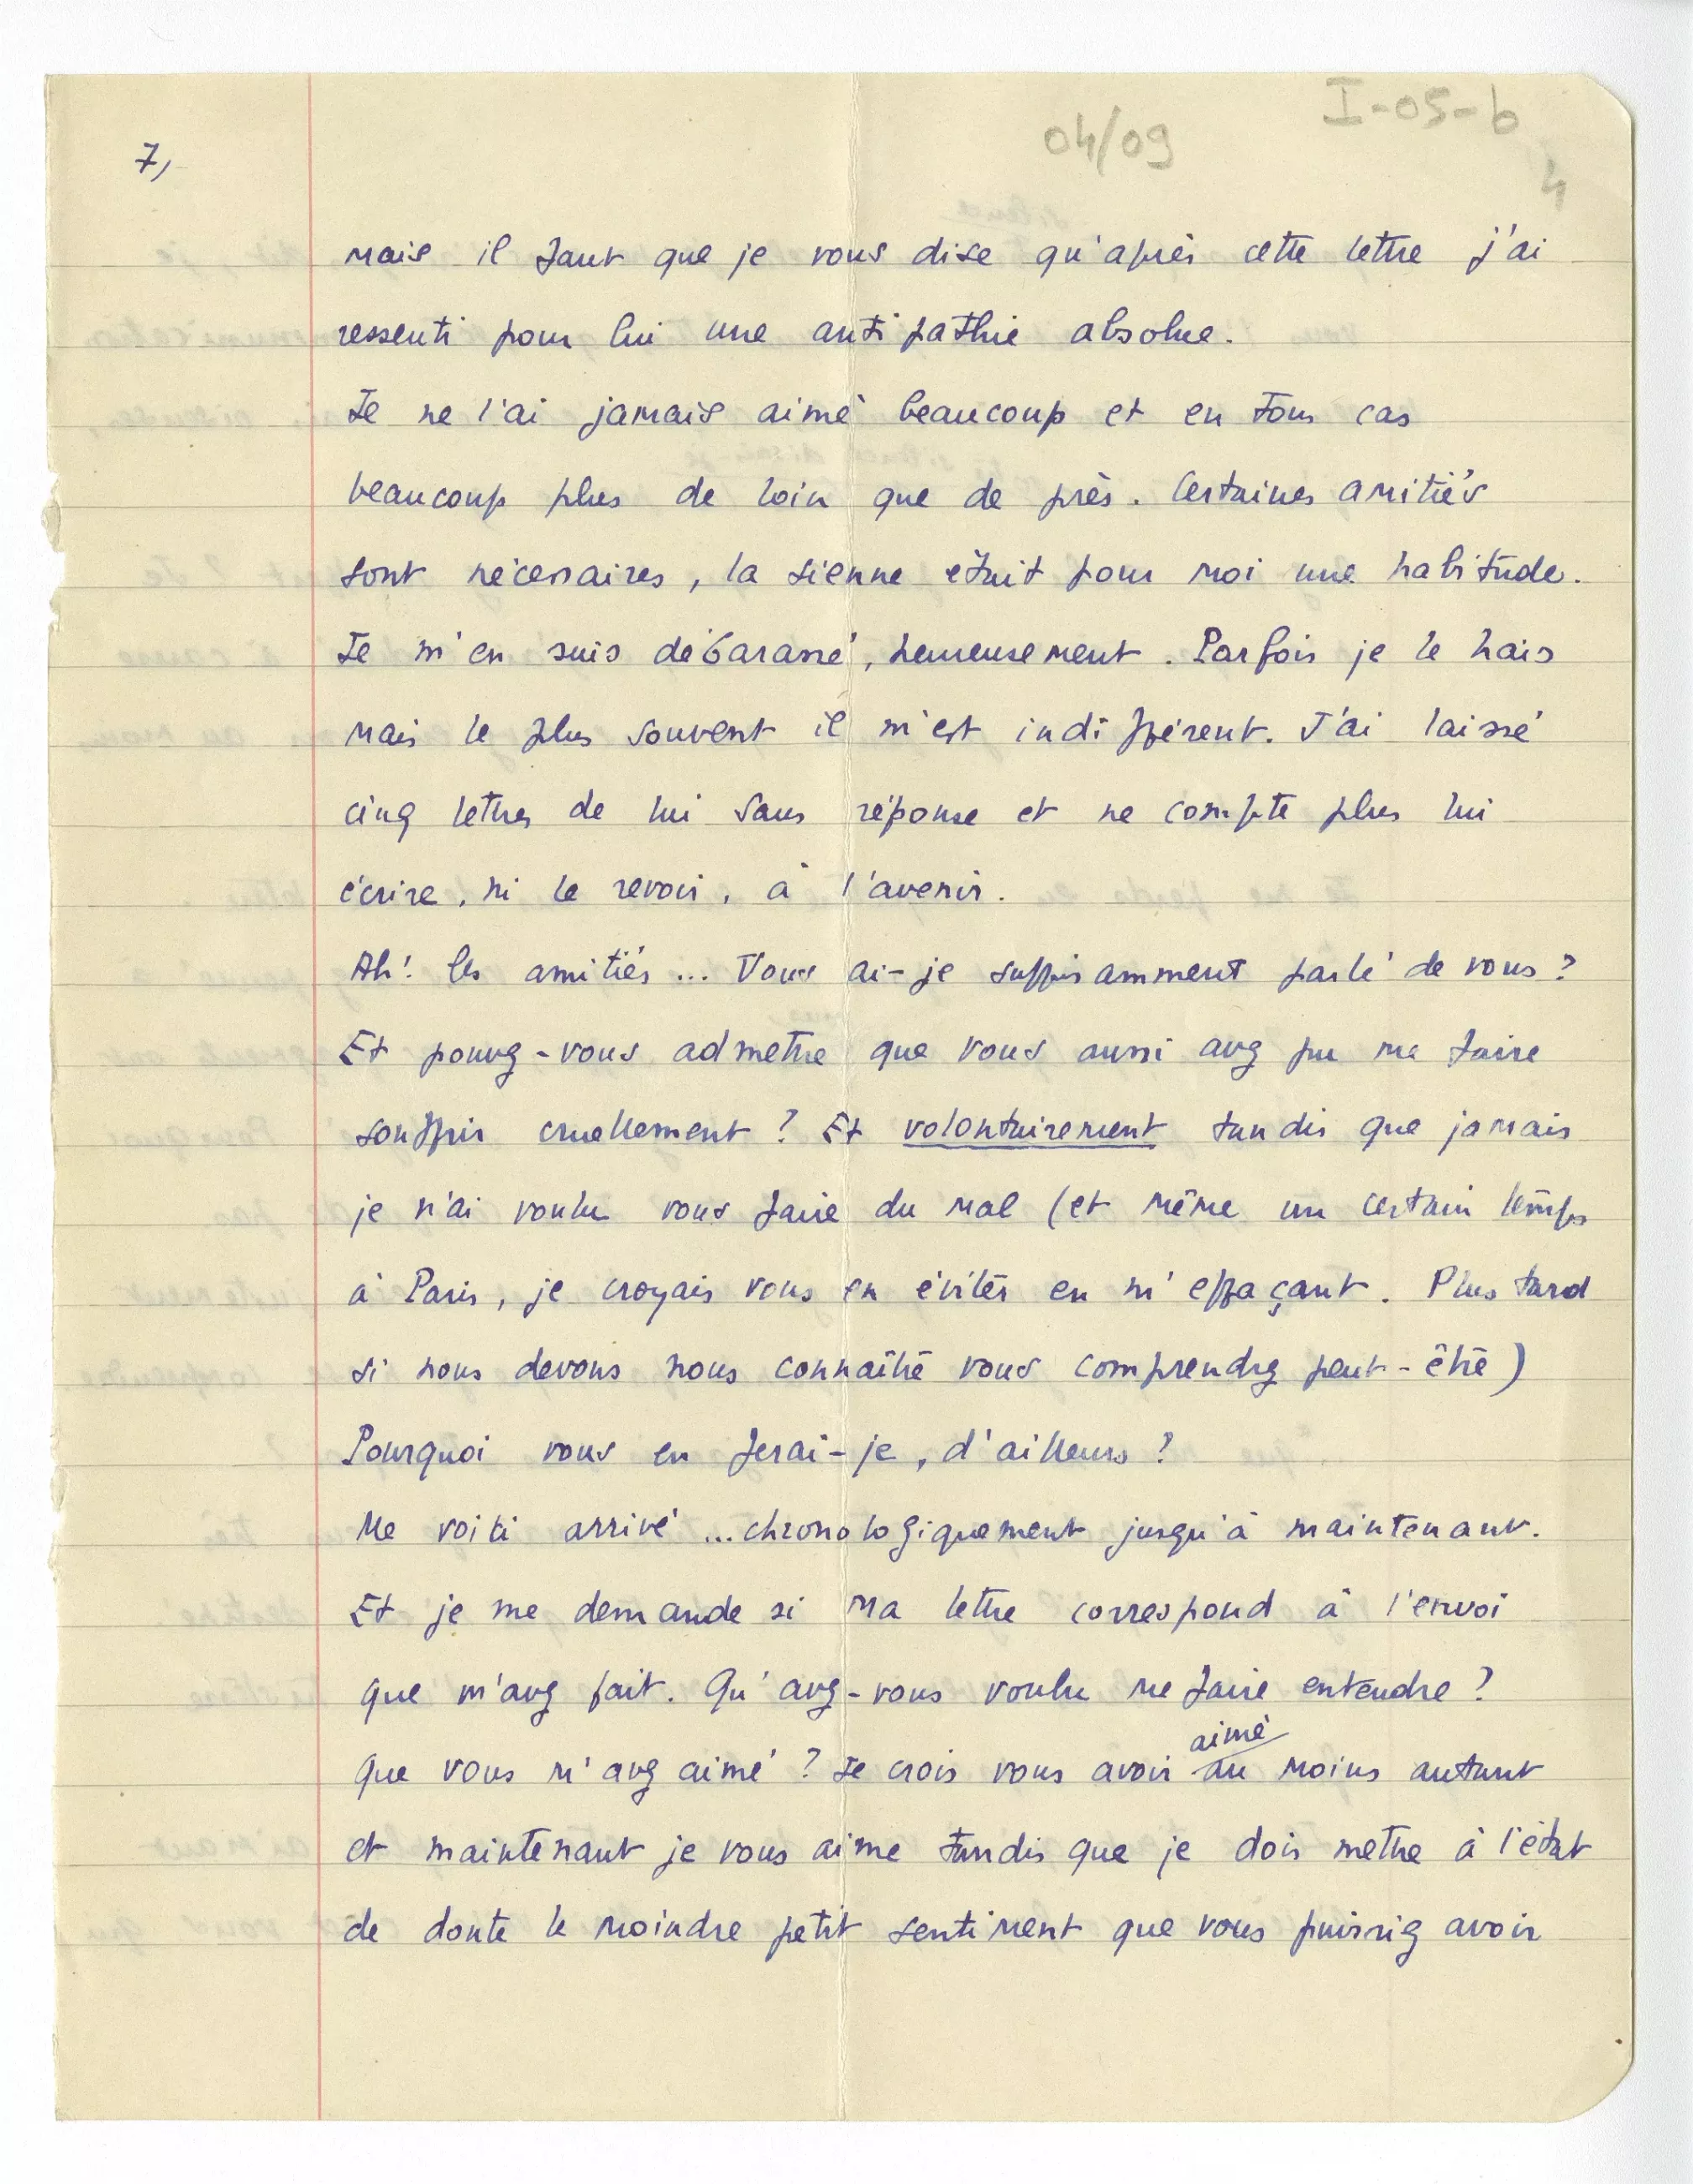 I-05-b
04/09
4
7,
mais il faut que je vous dise qu'après cette lettre j'ai
ressenti pour lui une antipathie absolue.
Je ne l'ai jamais aimé beaucoup et en tous cas
beaucoup plus de loin que de près. Certaines amitiés
sont nécessaires, la sienne était pour moi une habitude.
Je m'en suis débarassé, heureusement. Parfois je le hais
mais le plus souvent il m'est indifférent. J'ai laissé
cinq lettres de lui sans réponse et ne compte plus lui
écrire, ni le revoir, à l'avenir.
Ah! les amitiés... Vous ai-je suffisamment parlé de vous?
Et pouvez-vous admettre que vous aussi avez pu me faire
souffrir cruellement? Et volontairement tandis que jamais
je n'ai voulu vous faire du mal (et même un certain temps
à Paris, je croyais vous en éviter en m'effaçant. Plus tard
si nous devons nous connaître vous comprendrez peut-être)
Pourquoi vous en ferai-je, d'ailleurs?
Me voici arrivé ...chronologiquement jusqu'à maintenant.
Et je me demande si ma lettre correspond à l'envoi
que m'avez fait. Qu'avez-vous voulu me faire entendre?
aimé
Que vous m'avez aimé? Je crois vous avoir au moins autant
et maintenant je vous aime tandis que je dois mettre à l'état
de doute le moindre petit sentiment que vous puissiez avoir